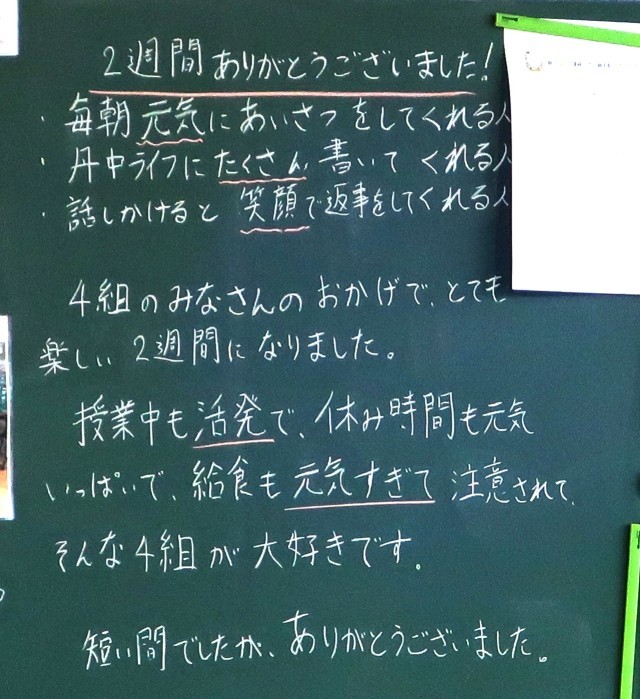 2週間ありがとうございました!
・毎朝元気にあいさつをしてくれる人
・丹中ライフにたくさん書いてくれる人
・話しかけると笑顔で返事をしてくれる人
4組のみなさんのおかげで、とても
楽しい2週間になりました。
授業中も活発で、休み時間も元気
いっぱいで、給食も元気すぎて注意されて、
そんな4組が大好きです。
短い間でしたが、ありがとうございました。